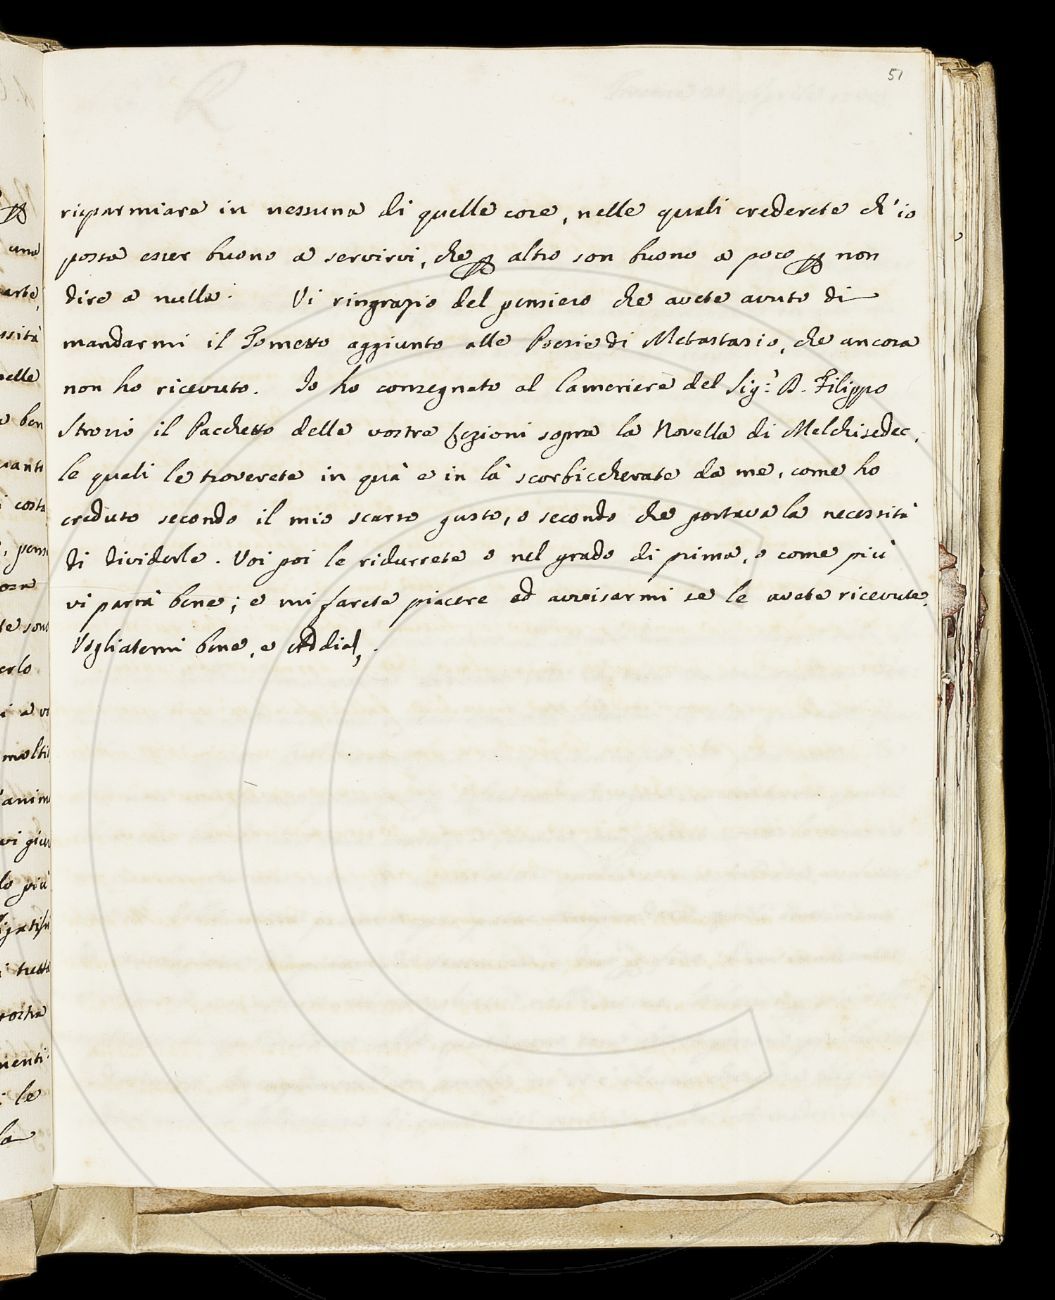 51
risparmiare in nessuna di quelle cose, nelle quali crederete ch'io
possa esser buono a servirvi, che altro son buono a poco non
dire a nulla. Vi ringrazio del pensiero che avete avuto di
mandarmi il Tometto aggiunto alle Poesie di Metastasio, che ancora
non ho ricevuto. Io ho consegnato al Cameriere del Sig.r D. Filippo
Strozzi il Pacchetto delle vostre sopra la Novella di Melchisedec,
le quali le troverete in quà e in là scorbiccherate da me, come ho
creduto secondo il mio scarso gusto, o secondo che portava la necessità
di dividerle. Voi poi le ridurrete o nel grado di prima, o come più
vi parrà bene; e mi farete piacere ad avvisarmi se le avete ricevute.
Vogliatemi bene, e Addio.
una
arte,
ssità
nelle
e ben
costa
sono
erlo
molti
più
tutto
vostra
menti
le
la